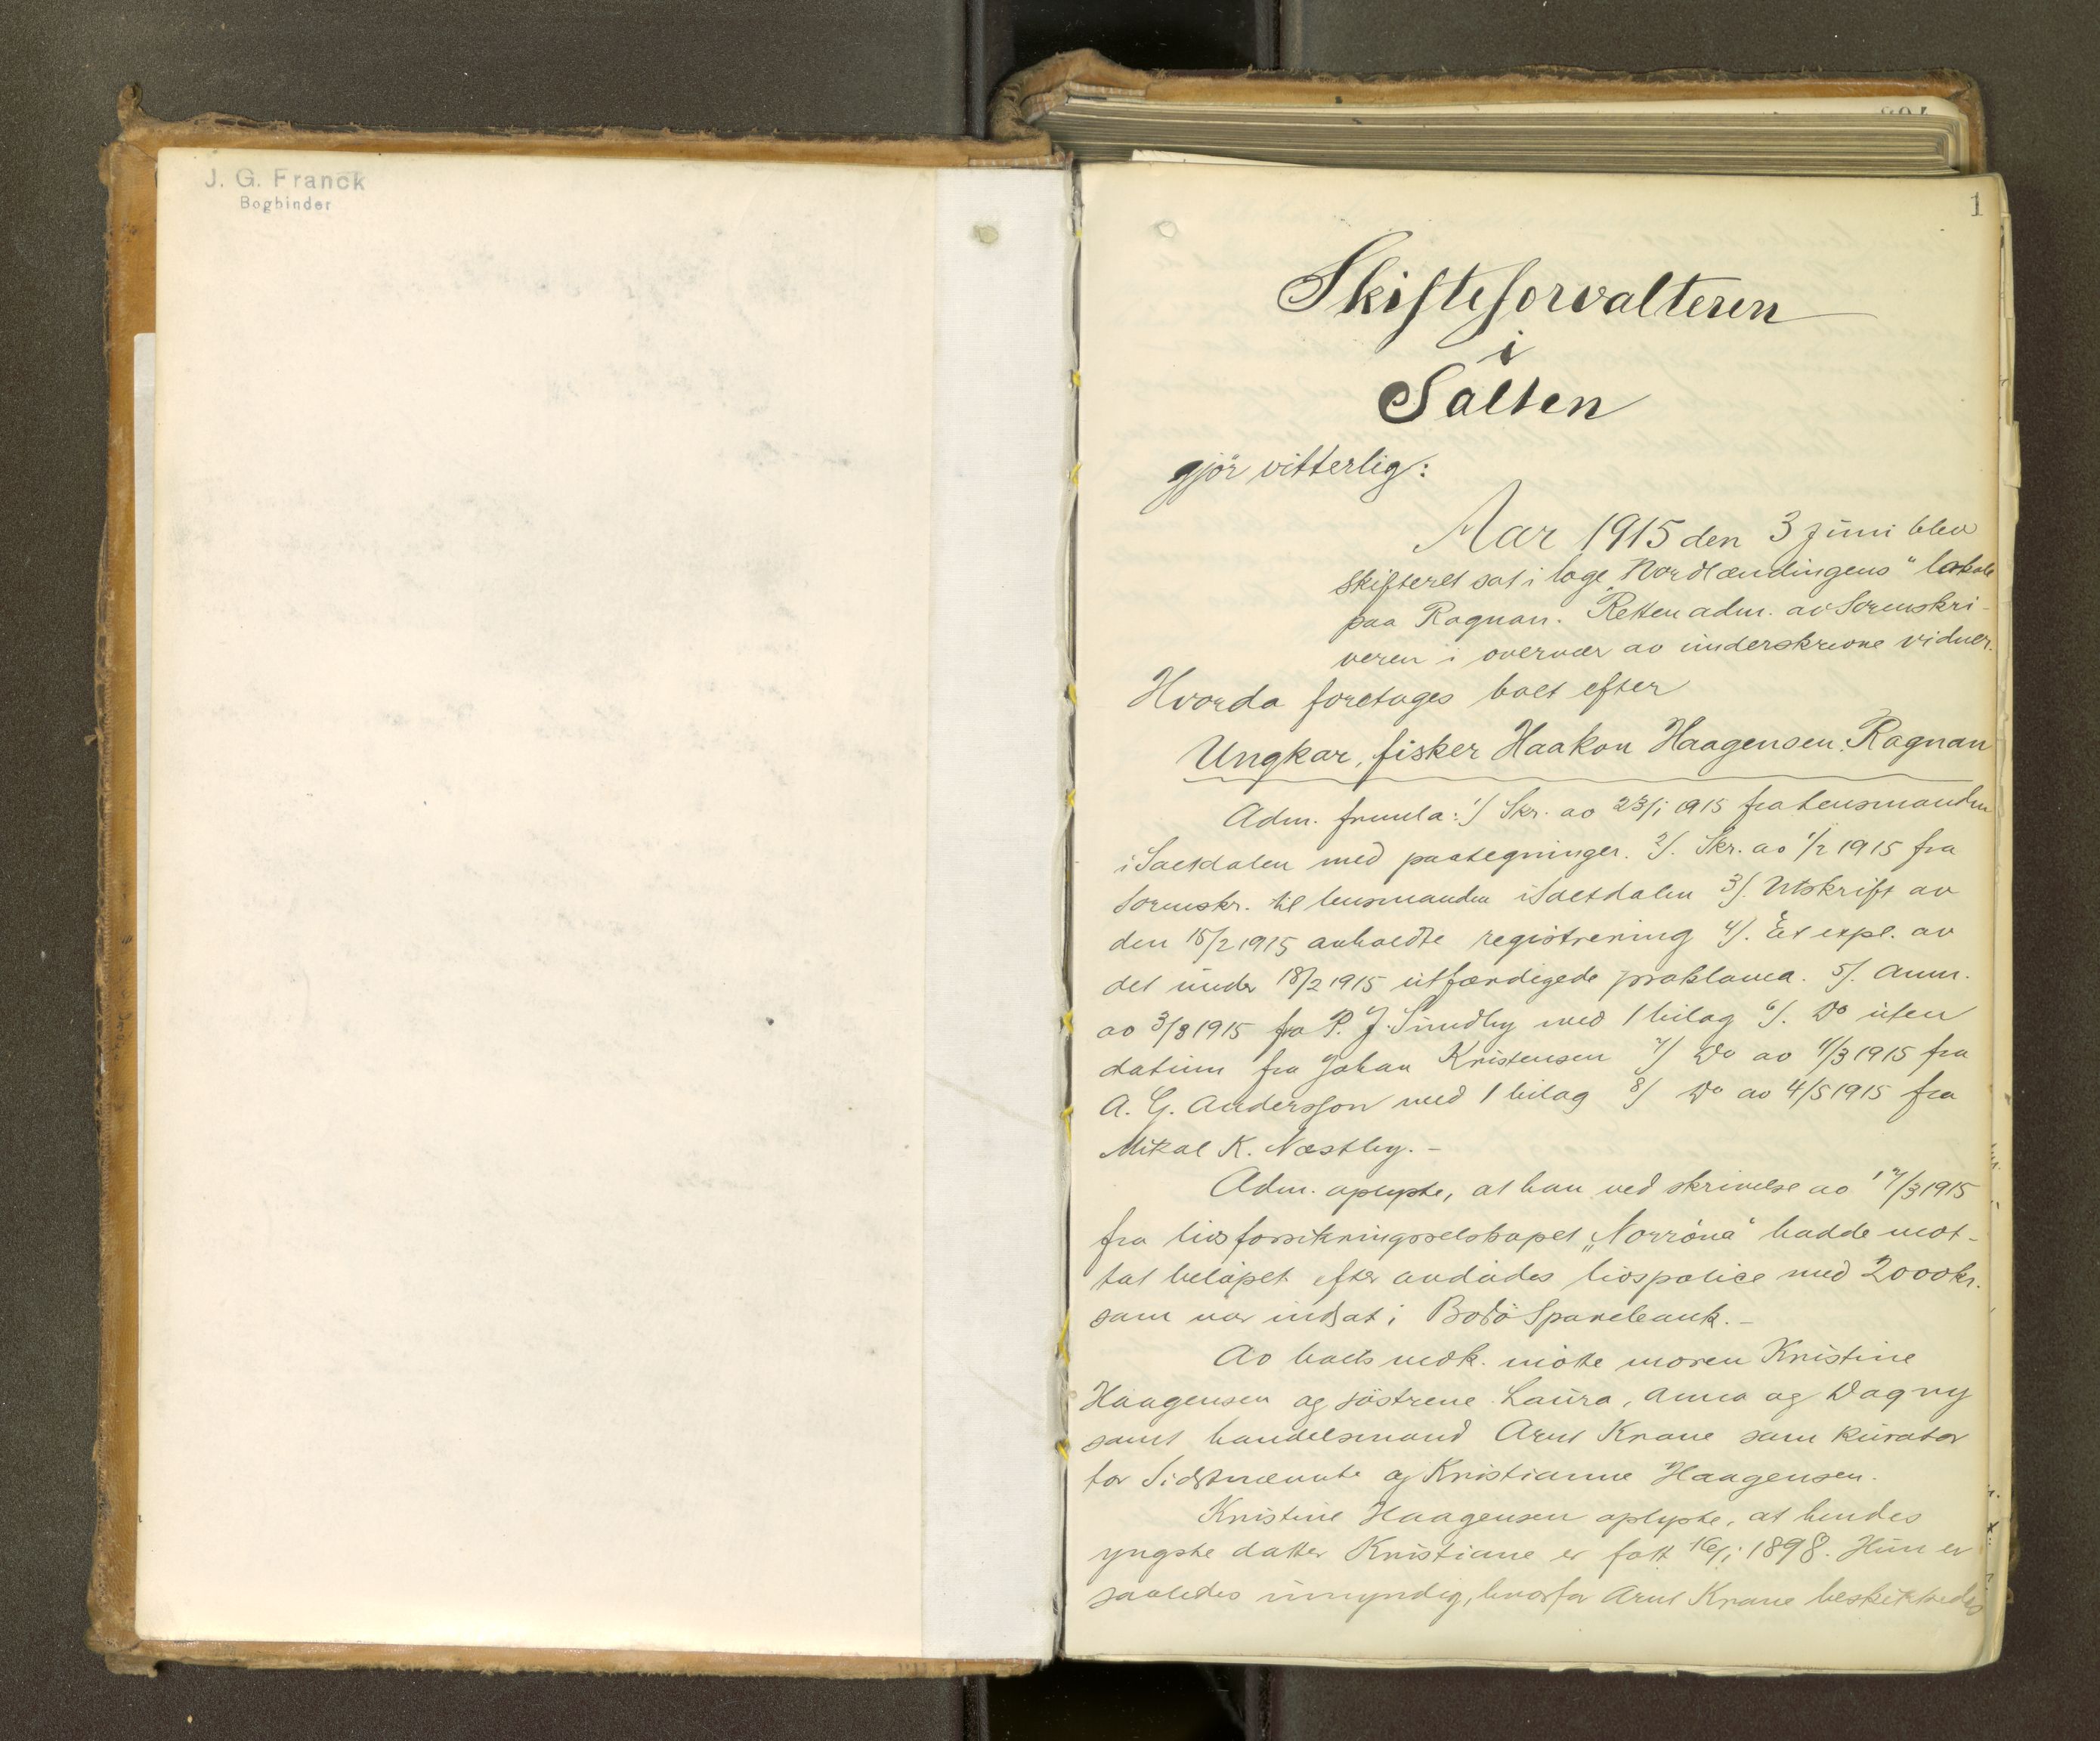 J. G. Franck
Bogbinder
1
Skifteforvalteren
i
Salten
gjör vitterlig:
Aar 1915 den 3 juni blev
skifteret sat i loge „Nordlændingens" lokale
paa Rognan. Retten adm. av Sorenskri-
veren i overvær av underskrevne vidner.
Hvorda foretages boet efter
Ungkar, fisker Haakon Haagensen. Rognan
Adm. freml a: 1/ Skr. av 23/1 1915 fra lensmanden
i Saltdalen med paategninger. 2/. Skr. av 1/2 1915 fra
Sorenskr. til lensmanden i Saltdalen 3/. Utskrift av
den 15/2 1915 avholdte registrering 4/. Et expl. av
det under 18/2 1915 utfærdigede proklama. 5/. Anm.
av 3/3 1915 fra P. J. Sundby med 1 bilag 6/. Do uten
datum fra Johan Kristensen 7/ Do av 4/3 1915 fra
A. G. Andersson med 1 bilag 8/ Do av 4/5 1915 fra
Mikal K. Næstby. -
Adm. oplyste, at han ved skrivelse av 17/3 1915
fra livsforsikringsselskapet „Norröna" hadde mot-
tat belöpet efter avdödes livspolice med 2000 kr.
som var indsat i Bodö Sparebank. -
Av boets vedk. mötte moren Kristine
Haagensen og söstrene Laura, Anna og Dagny
samt handelsmand Arnt Krane som kurator
for Sidstnævnte og Kristianne Haagensen.
Kristine Haagensen oplyste, at hendes
yngste datter Kristiane er föt 16/1 1898. Hun er
saaledes umyndig, hvorfor Arnt Krane beskikkedes